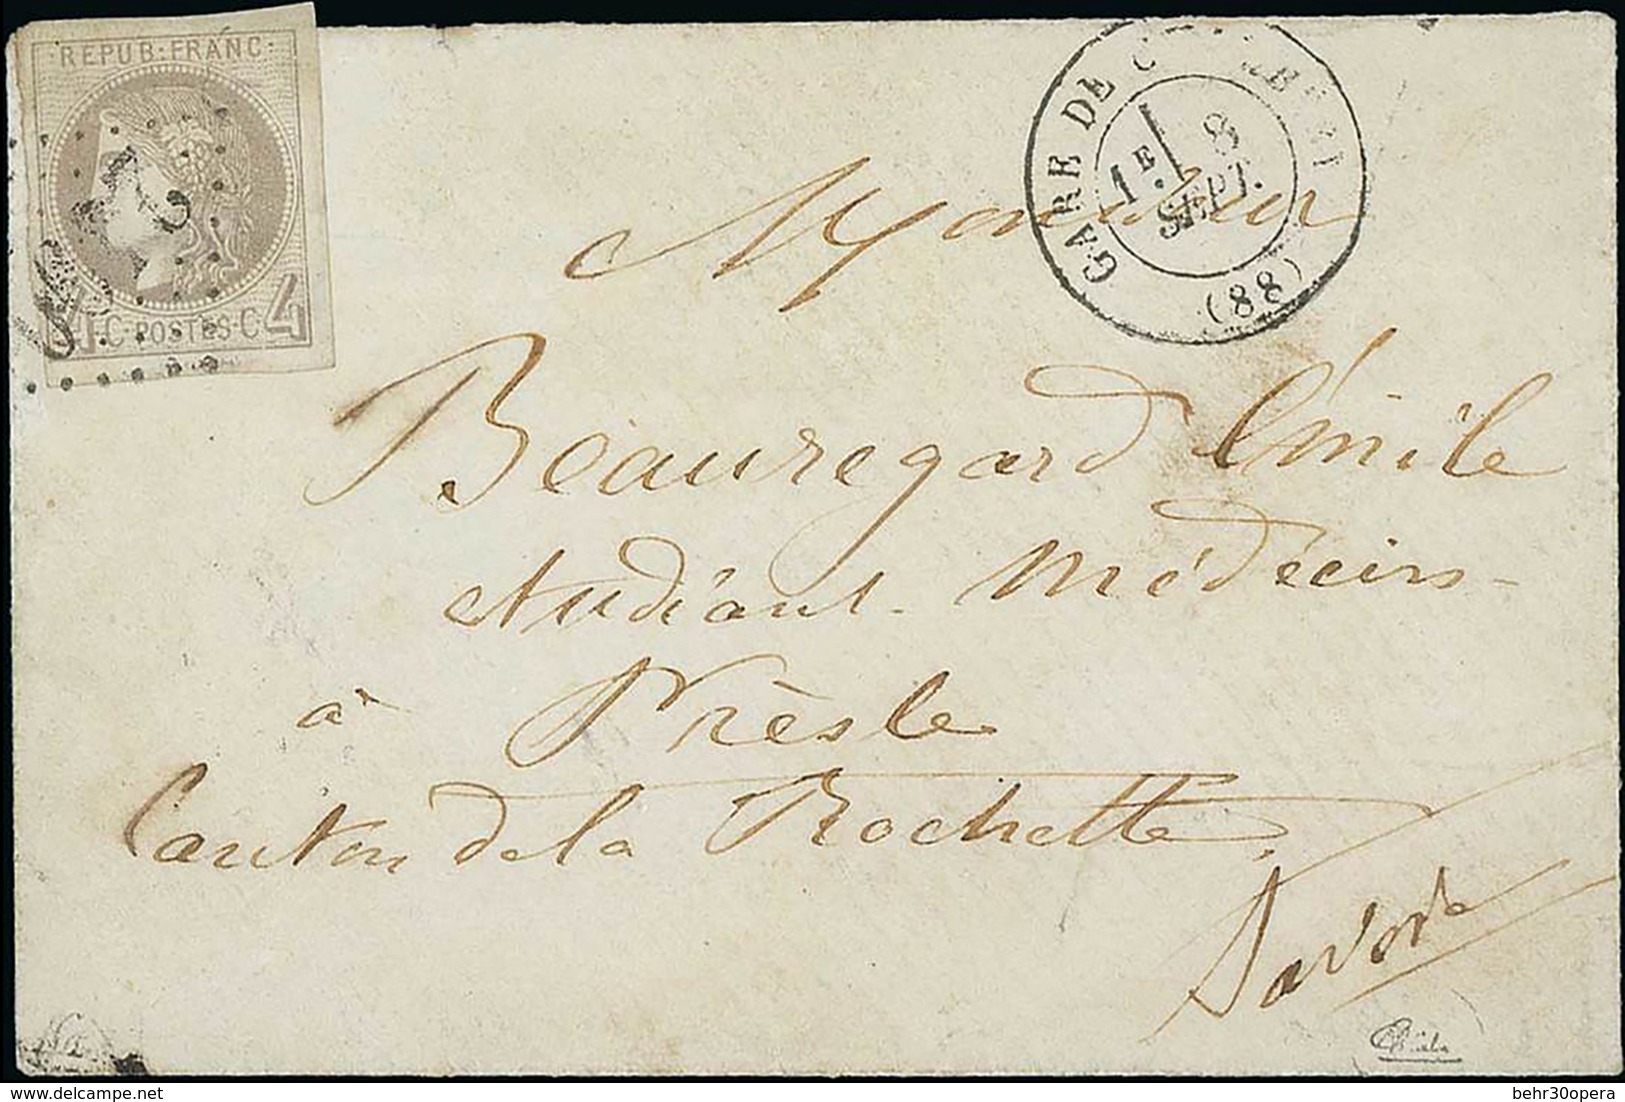 REPUB·FRANC·
4 C·POSTES·C 4
GARE DE
1E
8
SEPT.
(88)
Monsieur
Beauregard Émile
étudiant Médecin
à Prèsle
Canton de la Rochette
Savoie
behr30opera